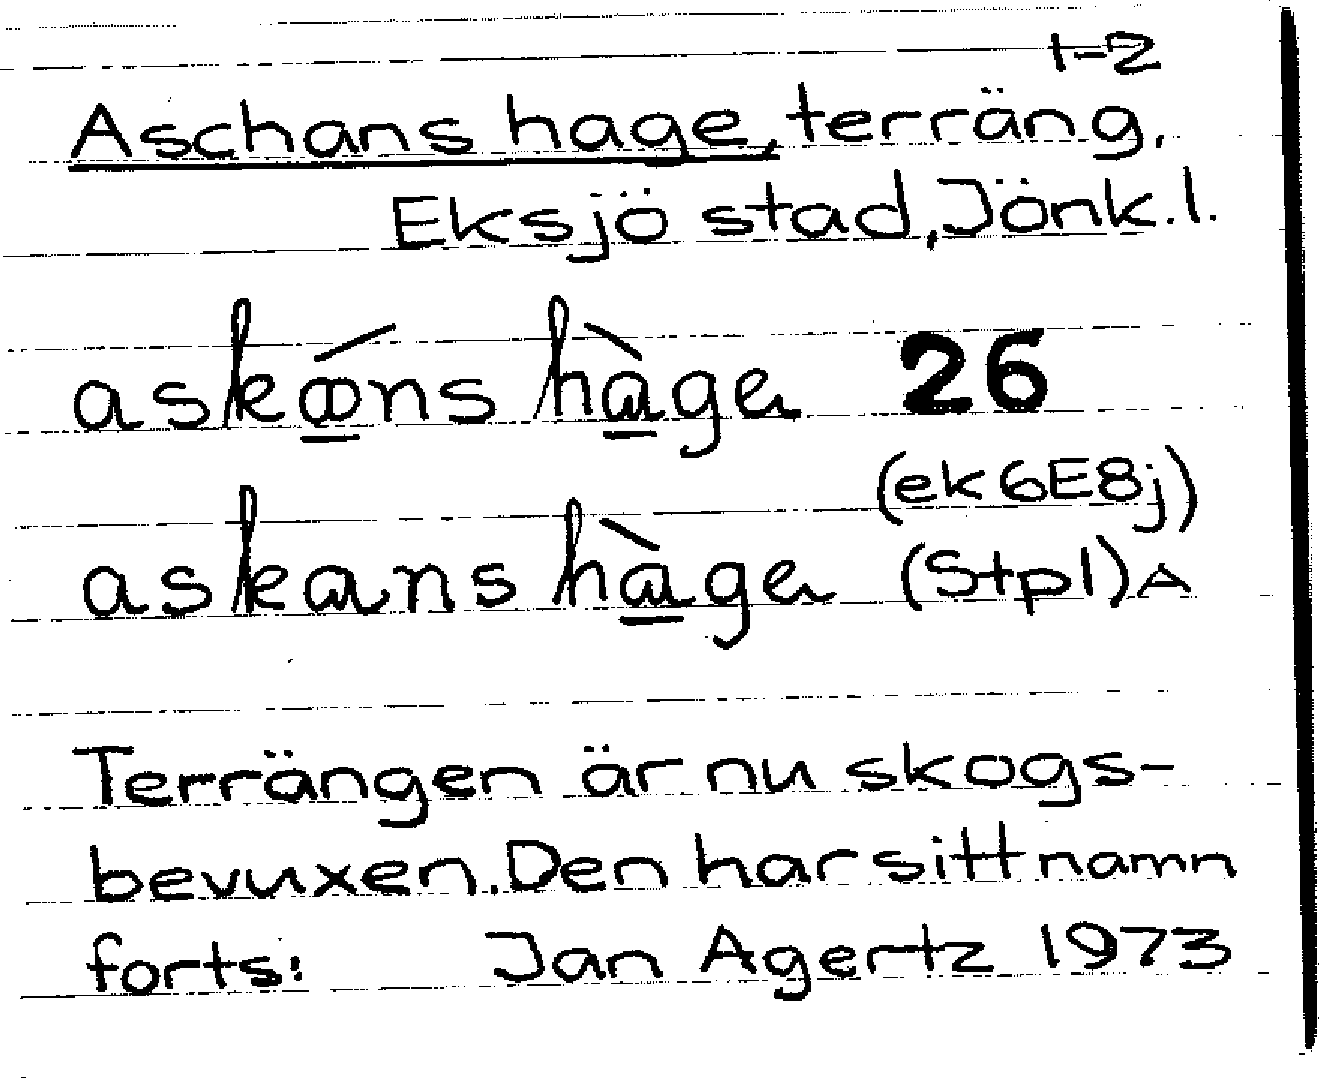 1-2
Aschans hage, terräng.
Eksjö stad, Jönk.l.
askans hage 26
(ek6E8j)
askans hage (Stpl)A
Terrängen är nu skogs-
bevuxen. Den har sitt namn
forts: Jan Agertz 1973